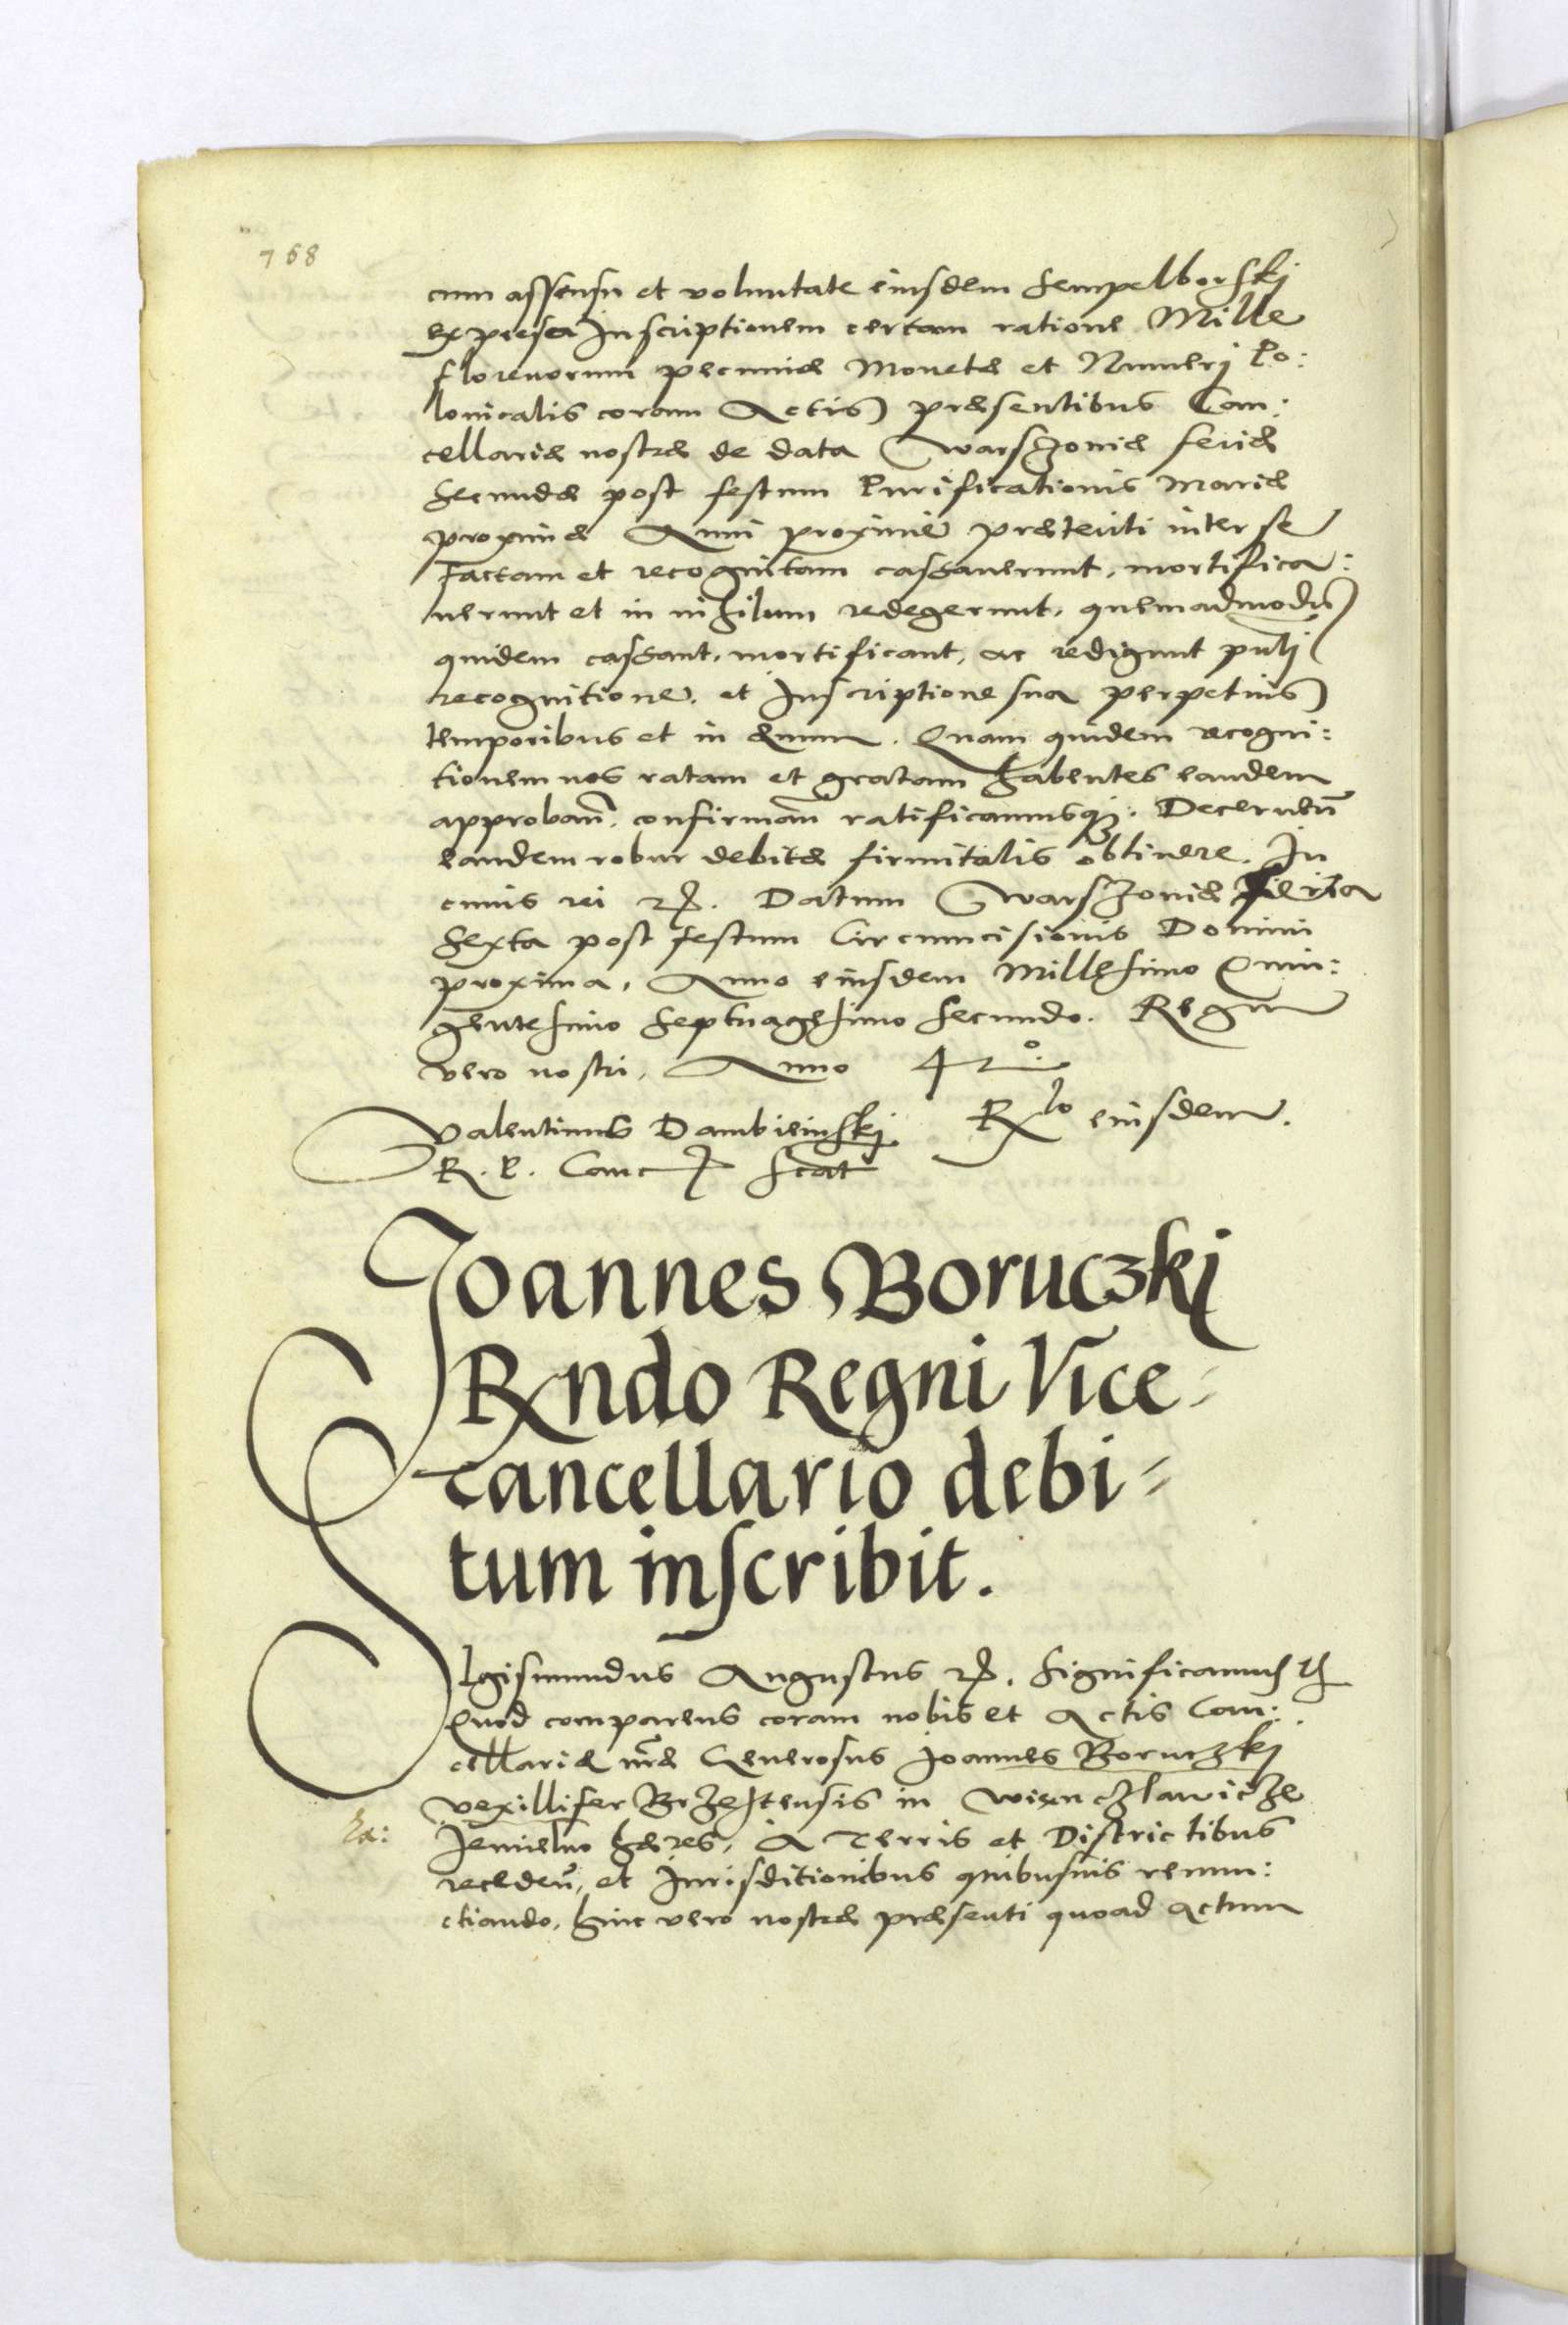 768
cum assensu et voluntate eiusdem Sempelborskj
expressa Inscriptionem certam ratione Mille
florenorum pecuniæ Monetæ et Numerj Po:
lonicalis coram Actis præsentibus Can:
cellariæ nostræ de data Warszoviæ feria
secunda post festum Purificationis Mariæ
proxima Anni proximè præteriti inter se
factam et recognitam cassaverunt, mortifica:
verunt et in nihilum redegerunt, quemadmodũ
quidem cassant, mortificant, ac redigunt pñti
recognitione, et Inscriptione sua perpetuis
temporibus et in æuum. Quam quidem recogni:
tionem nos ratam et gratam habentes eandem
approbam̃, confirmam̃ ratificamusq3: Decernen̄
eandem robur debitæ firmitatis obtinere. In
cuius rei etc. Datum Warszoviæ feria
sexta post festum Circumcisionis Domini
proxima, Anno eiusdem Millesimo Quin:
gentesimo septuagesimo secundo. Regni
vero nostri, Anno 42º.
Valentinus Dambieinskj Rlo eiusdem.
R. P. Canc sscat
Joannes Boruczkj
Rndo Regni Vice=
cancellario debi=
tum inscribit.
SIgismundus Augustus etc. Significamus etc
Quod comparens coram nobis et Actis Can:
cellariæ nr̃æ Generosus Joannes Boruczkj
vexillifer Brzestensis in Wienczlawicze
Jemielno hæres, A Terris et Districtibus
receden̄, et Jurisditionibus quibusuis renun:
ctiando, huic vero nostræ præsenti quoad actum